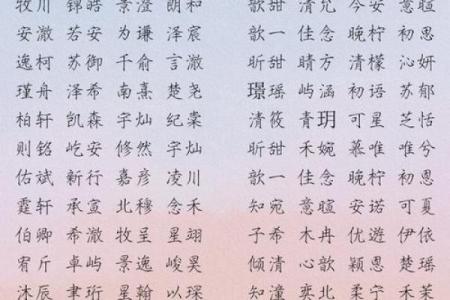 牧川 锦皓 景澄 朗和 歆甜 清尤 今安 意暄
安澈 若安 为谦 泽宸 歆一 佳念 晚柠 初思
逸柯 苏御 千俞 言澈 昕甜 晴方 清檬 沁妍
瑾舟 泽希 南熹 楚尧 璟瑶 屿涵 初语 苏郁
柏轩 凯森 宇灿 纪棠 清筱 青玥 可星 芝恬
则铭 屹安 修然 宇灿 昕甜 禾婉 慕唯 唯兮
佑斌 新行 嘉彦 凌川 歆一 佳念 晚柠 初思
霆轩 承宣 北穆 念禾 知宛 意暄 安诺 可夏
伯卿 希澈 牧呈 星翊 子希 木冉 优遊 伊依
宥斤 卓屿 景逸 峻昊 倾清 心歆 颖恩 楚瑶
沐辰 聿珩 星翰 以琛 知潼 奕北 柔宁 禾茉